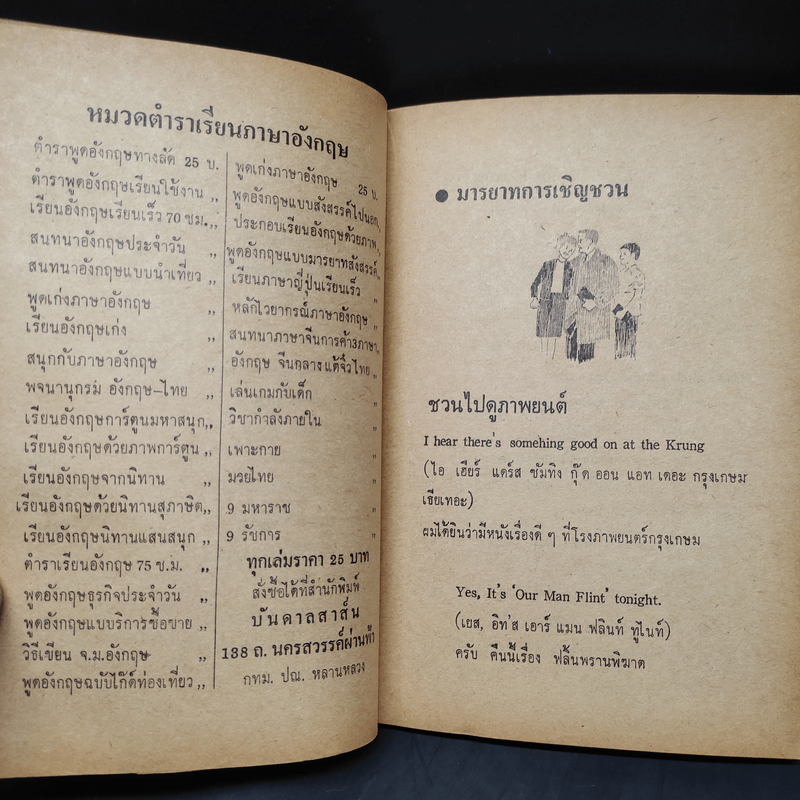 หมวดตำราเรียนภาษาอังกฤษ
ตำราพูดอังกฤษทางลัด 25 บ.
ตำราพูดอังกฤษเรียนใช้งาน ,,
เรียนอังกฤษเรียนเร็ว 70 ชม. ,,
สนทนาอังกฤษประจำวัน ,,
สนทนาอังกฤษแบบนำเที่ยว ,,
พูดเก่งภาษาอังกฤษ ,,
เรียนอังกฤษเก่ง ,,
สนุกกับภาษาอังกฤษ ,,
พจนานุกรม อังกฤษ-ไทย ,,
เรียนอังกฤษการ์ตูนมหาสนุก ,,
เรียนอังกฤษด้วยภาพการ์ตูน ,,
เรียนอังกฤษจากนิทาน ,,
เรียนอังกฤษด้วยนิทานสุภาษิต ,,
เรียนอังกฤษนิทานแสนสนุก ,,
ตำราเรียนอังกฤษ 75 ช.ม. ,,
พูดอังกฤษธุรกิจประจำวัน ,,
พูดอังกฤษแบบบริการซื้อขาย ,,
วิธีเขียน จ.ม.อังกฤษ ,,
พูดอังกฤษฉบับไก๊ด์ท่องเที่ยว ,,
พูดเก่งภาษาอังกฤษ 25 บ.
พูดอังกฤษแบบสังสรรค์ไปนอก ,,
ประกอบเรียนอังกฤษด้วยภาพ ,,
พูดอังกฤษแบบมารยาทสังสรรค์ ,,
เรียนภาษาญี่ปุ่นเรียนเร็ว ,,
หลักไวยากรณ์ภาษาอังกฤษ ,,
สนทนาภาษาจีนการค้า3ภาษา ,,
อังกฤษ จีนกลาง แต้จิ๋ว ไทย ,,
เล่นเกมกับเด็ก ,,
วิชากำลังภายใน ,,
เพาะกาย ,,
มวยไทย ,,
9 มหาราช ,,
9 รัชการ ,,
ทุกเล่มราคา 25 บาท
สั่งซื้อได้ที่สำนักพิมพ์
บันดาลสาส์น
138 ถ. นครสวรรค์ผ่านฟ้า
กทม. ปณ. หลานหลวง
● มารยาทการเชิญชวน
ชวนไปดูภาพยนต์
I hear there's somehing good on at the Krung
(ไอ เฮียร์ แดร์ส ซัมทิง กุ๊ด ออน แอท เดอะ กรุงเกษม
เธียเทอะ)
ผมได้ยินว่ามีหนังเรื่องดี ๆ ที่โรงภาพยนตร์กรุงเกษม
Yes, It's 'Our Man Flint' tonight.
(เยส, อิท'ส เอาร์ แมน ฟลินท์ ทูไนท์)
ครับ คืนนี้เรื่อง ฟลิ้นพรานพิฆาต